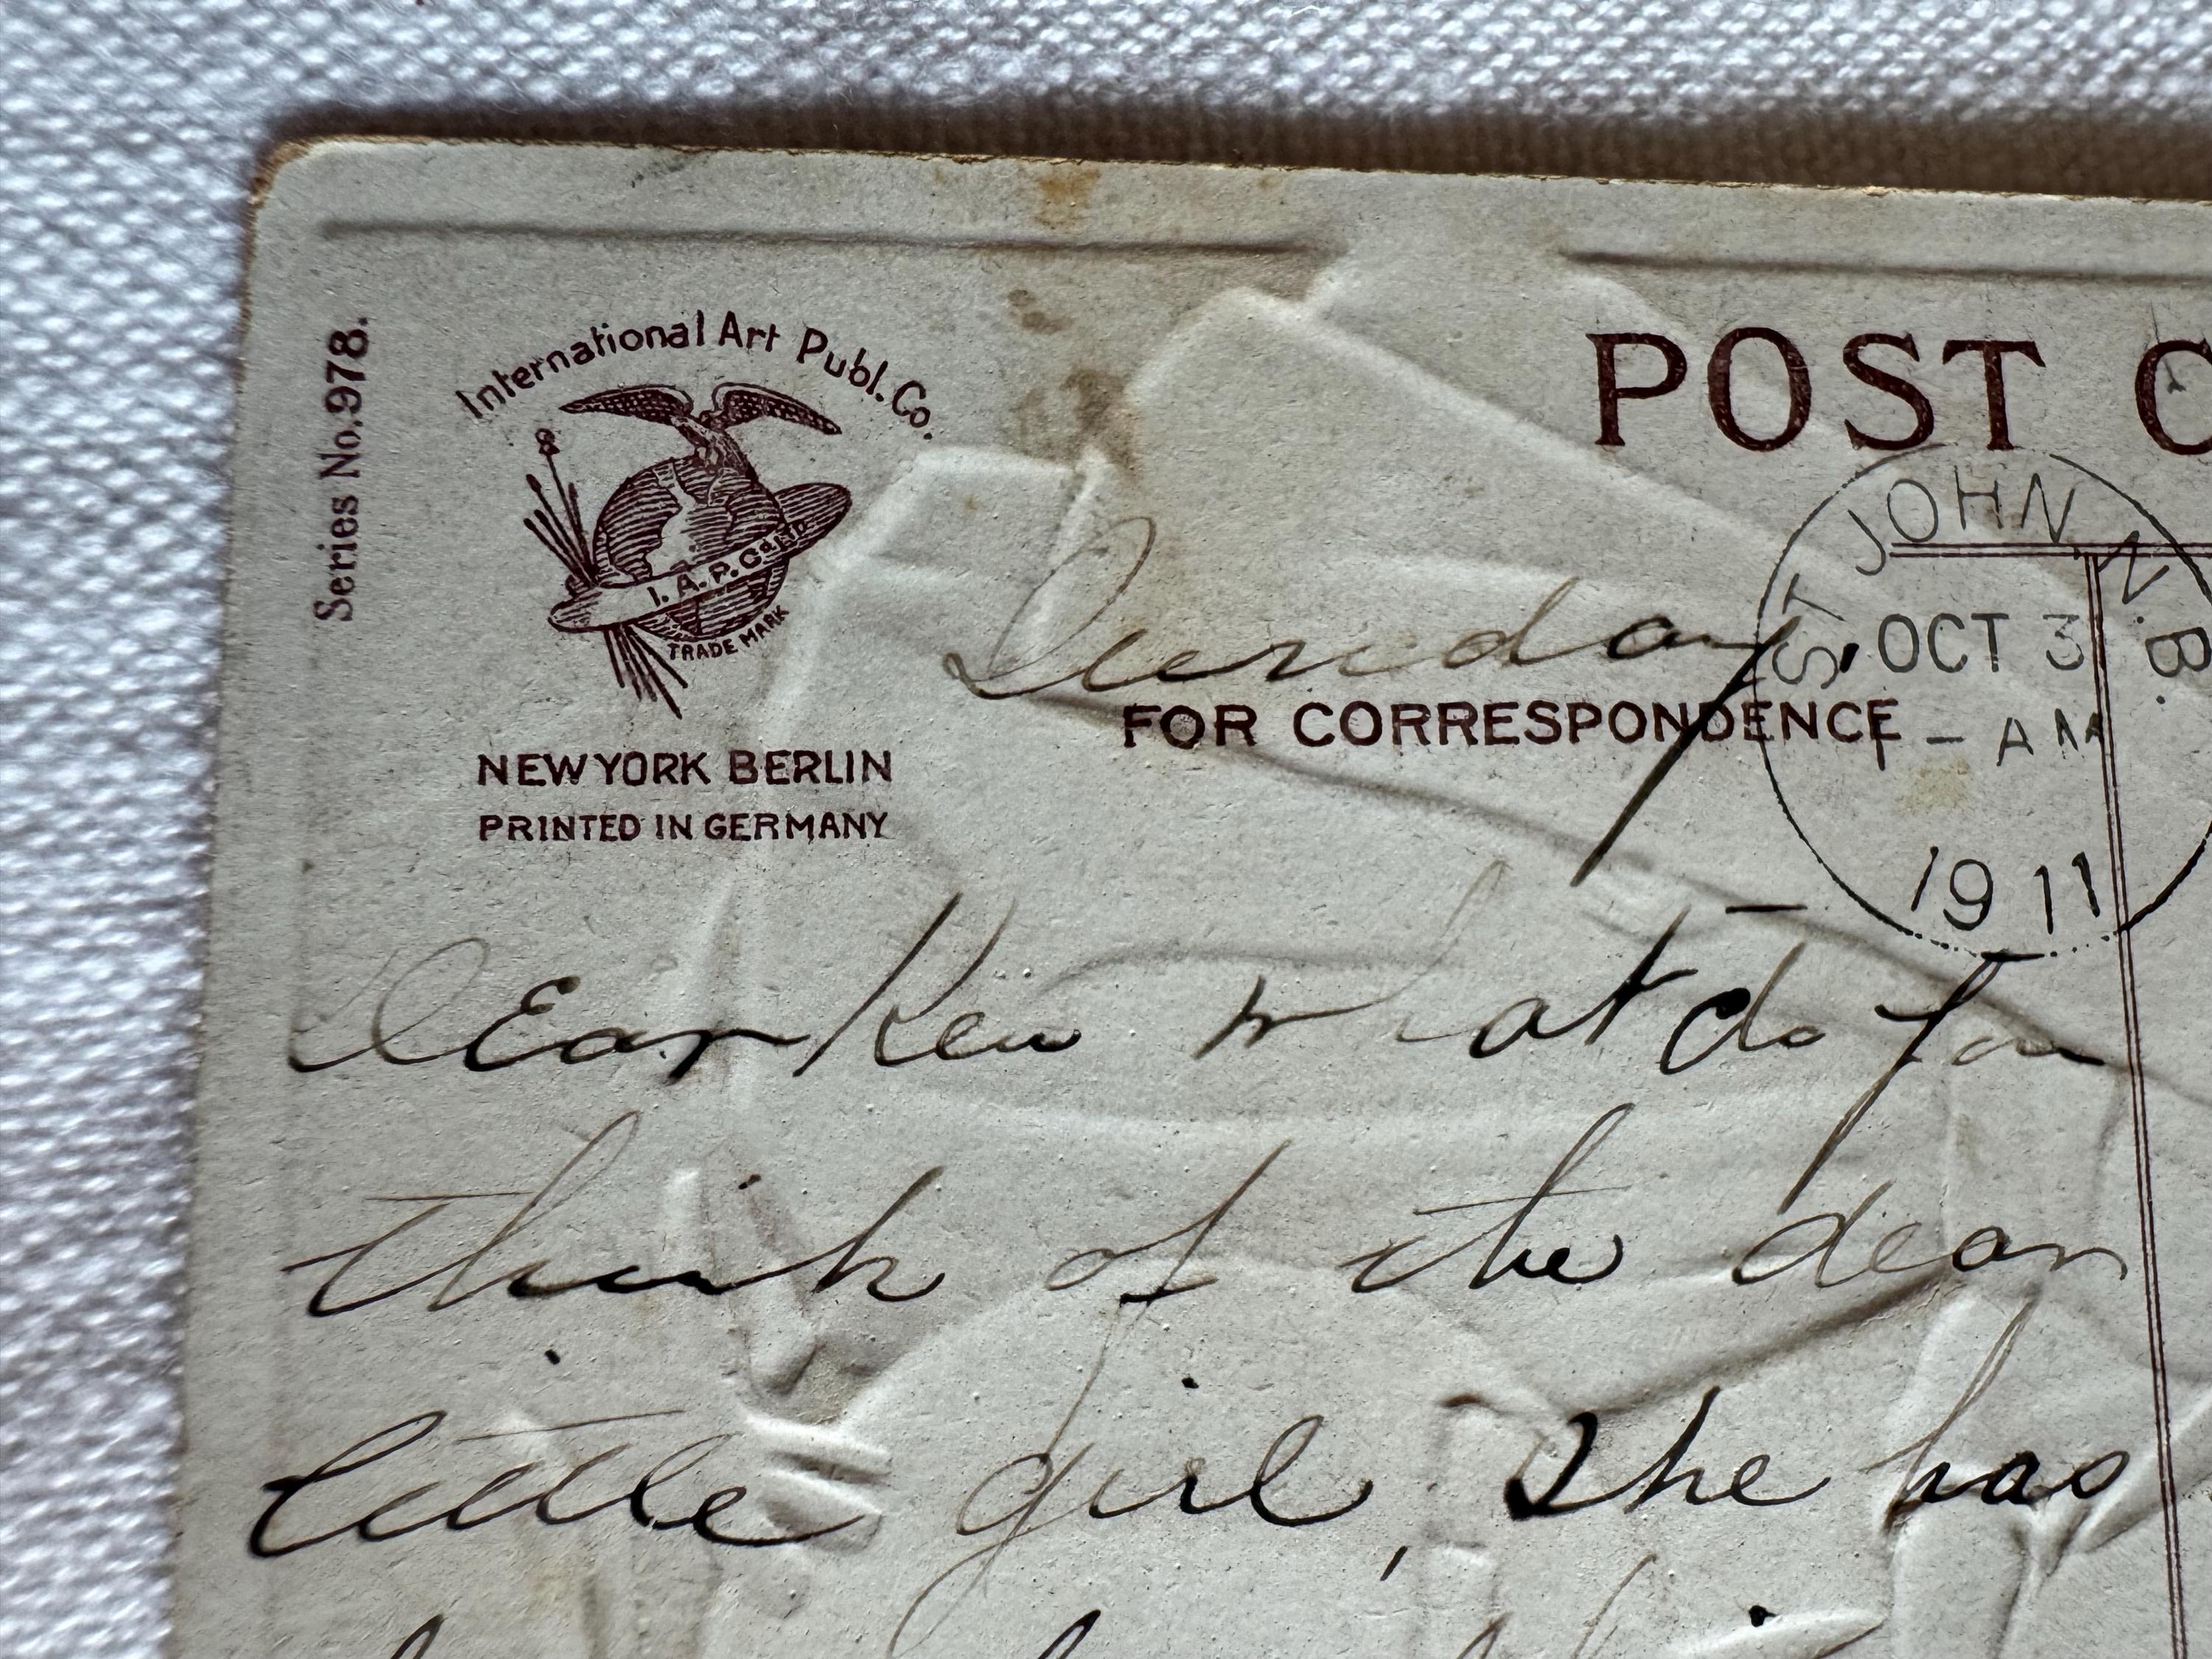 Series No. 978.
International Art Publ. Co.
I. A. P. Co. Ltd
TRADE MARK
NEW YORK BERLIN
PRINTED IN GERMANY
POST C
ST JOHN, N.B.
OCT 3
- AM
1911
Tuesday
FOR CORRESPONDENCE
DEar Ken what do you
think of the dear
little girl, She has